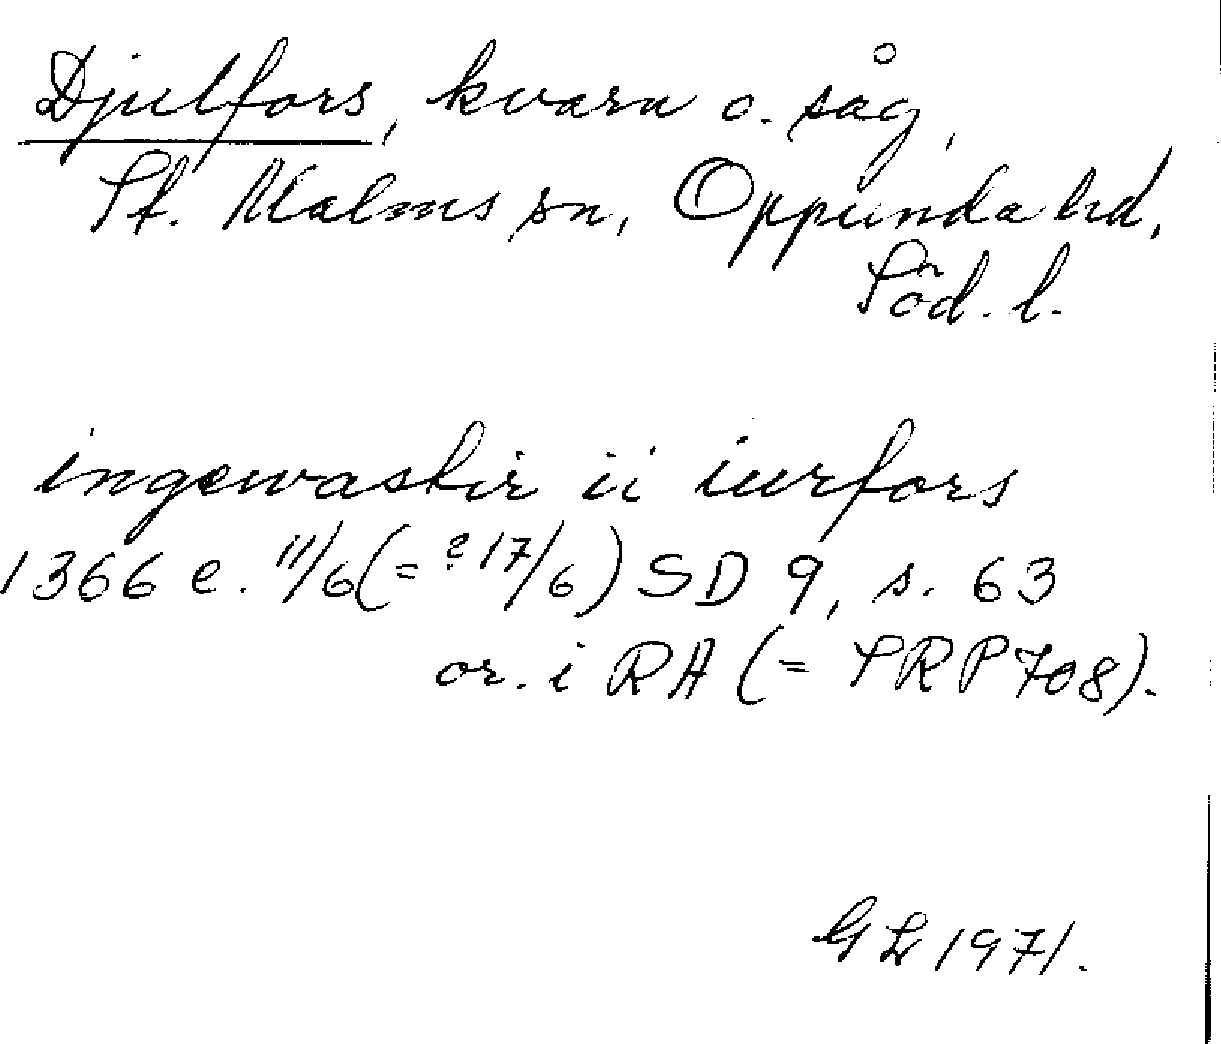 Djulfors, kvarn o. såg,
St. Malms sn, Oppunda hd,
Söd. l.
ingewastir ii iurfors
1366 e. 11/6 (= ? 17/6) SD 9, s. 63
or. i RA (= SRP 708).
GL 1971.